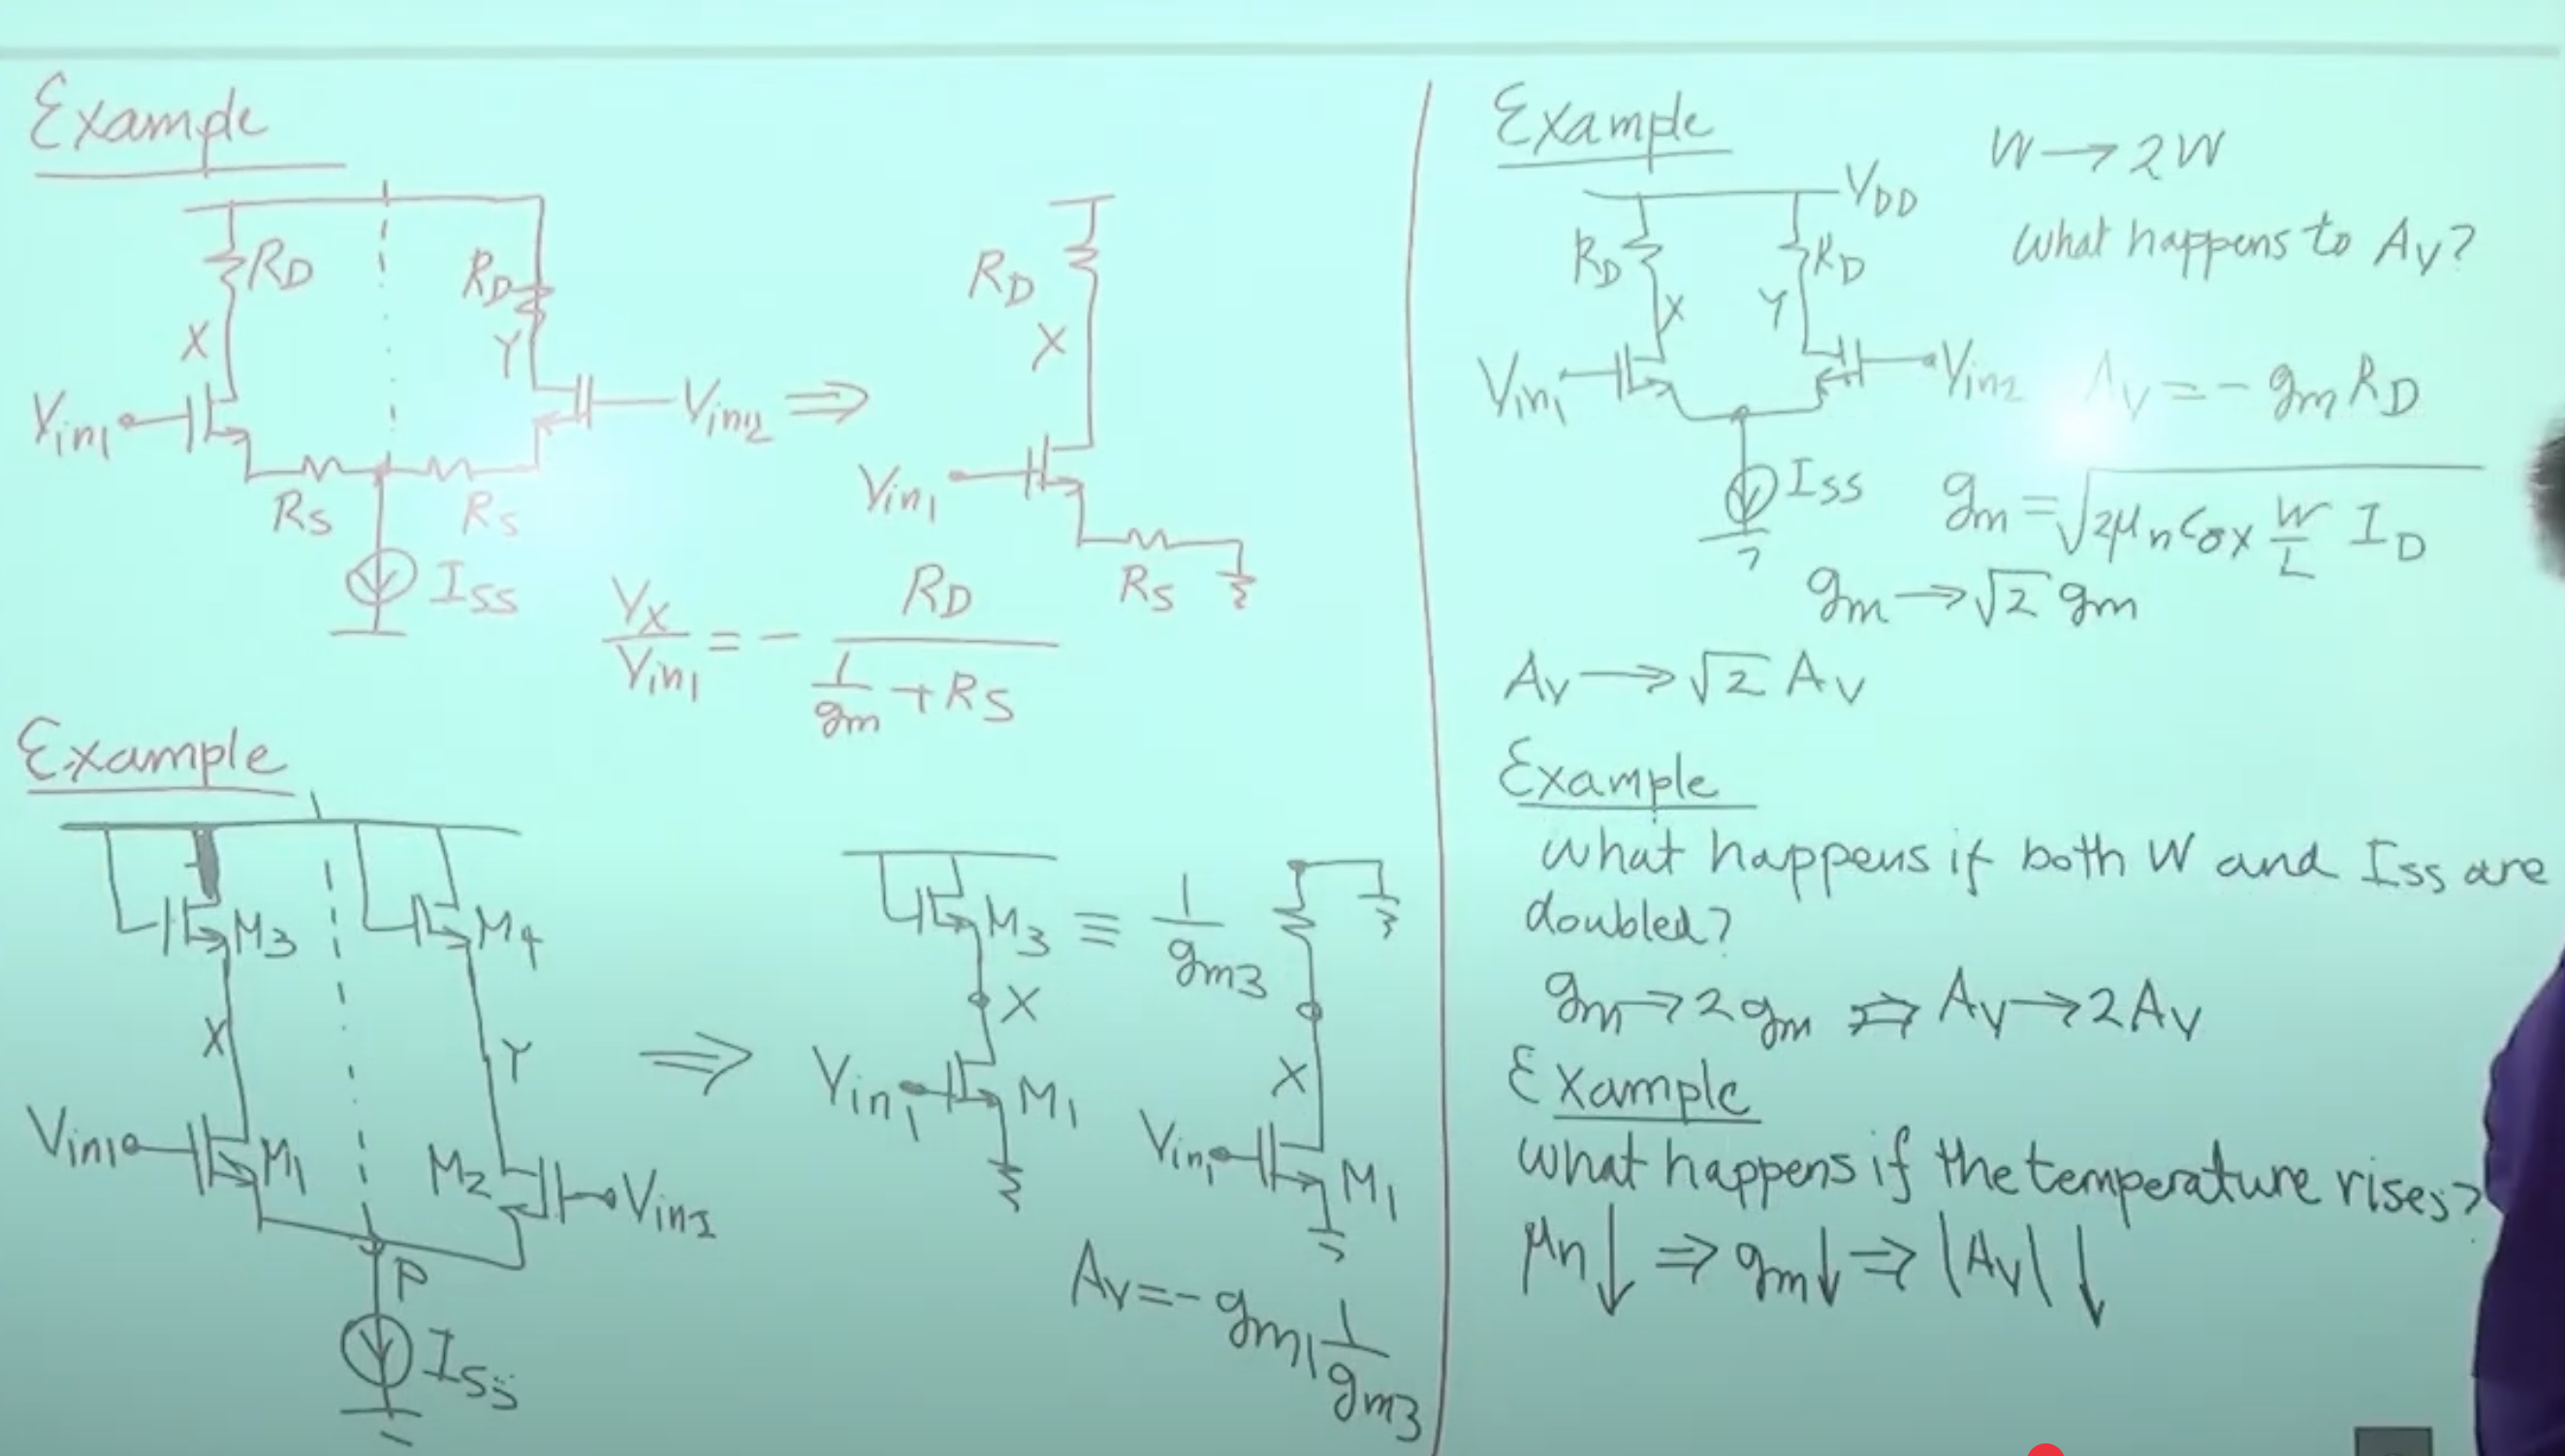 Example
RD
RD
X
Y
Vin1
Vin2
⇒
RS
RS
ISS
RD
X
Vin1
RS
VX/Vin1 = - RD/(1/gm + RS)
Example
M3
M4
X
Y
Vin1
M1
M2
P
ISS
⇒
M3 ≡ 1/gm3
X
Vin1
M1
X
Vin1
M1
AV = - gm1 1/gm3
Example
W → 2W
VDD
What happens to AV?
RD
RD
X
Y
Vin1
Vin2
AV = - gm RD
ISS
gm = √(2μn Cox W/L ID)
gm → √2 gm
AV → √2 AV
Example
What happens if both W and ISS are
doubled?
gm → 2 gm ⇒ AV → 2 AV
Example
What happens if the temperature rises?
μn ↓ ⇒ gm ↓ ⇒ |AV| ↓